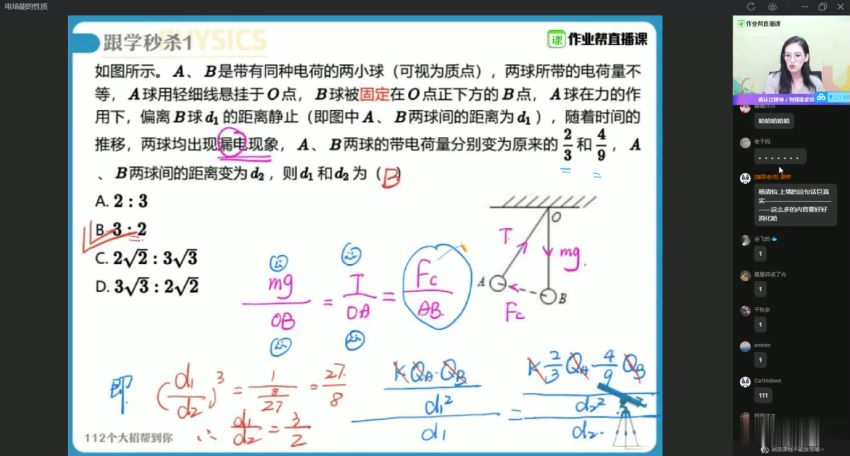 电场能的性质
跟学秒杀1
PHYSICS
作业帮直播课
如图所示。A、B是带有同种电荷的两小球（可视为质点），两球所带的电荷量不
等，A球用轻细线悬挂于O点，B球被固定在O点正下方的B点，A球在力的作
用下，偏离B球d₁的距离静止（即图中A、B两球间的距离为d₁），随着时间的
推移，两球均出现漏电现象，A、B两球的带电荷量分别变为原来的2/3和4/9，A
、B两球间的距离变为d₂，则d₁和d₂为（B）
A. 2：3
B. 3：2
C. 2√2：3√3
D. 3√3：2√2
O
T
mg
A
B
Fc
mg/OB = T/OA = Fc/AB
即 (d₁/d₂)³ = 1/(8/27) = 27/8
∴ d₁/d₂ = 3/2
(KQA·QB/d₁²)/d₁ = (K2/3QA·4/9QB/d₂²)/d₂
112个大招帮到你
作业帮直播课
哈哈哈哈哈
老干妈
. . . . . . .
杨清怡:上填的这句话巨真
实
这么多的内容要好好
消化哈
1
1
千秋岁
1
1
Catmdown
111